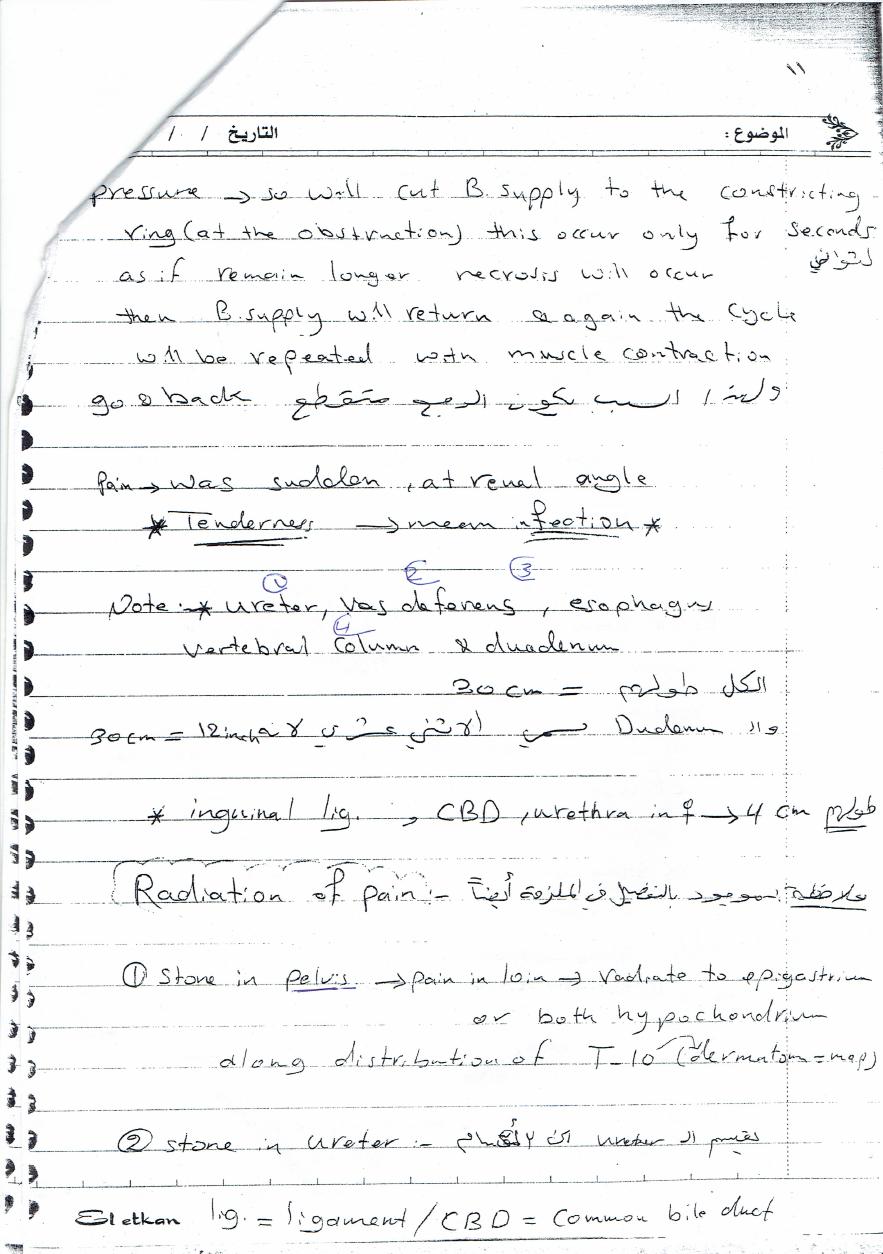 ١١
الموضوع :
التاريخ / /
pressure → so will cut B.supply to the constricting
ring (at the obstruction) this occur only for seconds
لثواني
as if remain longer necrosis will occur
then B.supply will return & again the cycle
will be repeated with muscle contraction
go & back ولهذا السبب يكون الوجع متقطع
Pain → was sudden, at renal angle
* Tenderness → mean infection *
① ② ③
Note :- * ureter, vas deferens, esophagus
④
vertebral column & duadenum
الكل طولهم = 30 cm
والـ Dudenum يسمى الاثني عشري لا 12 inch = 30cm
* inguinal lig. , CBD , urethra in ♀ → 4 cm طولهم
Radiation of pain :- ملاحظة: موجود بالتفصيل في الملزمة أيضاً
① Stone in pelvis → pain in loin → radiate to epigastrium
or both hypochondrium
along distribution of T-10 (dermatom = map)
② stone in ureter :- نقسم الـ ureter الى ٢ أقسام
El etkan lig. = ligament / CBD = Common bile duct